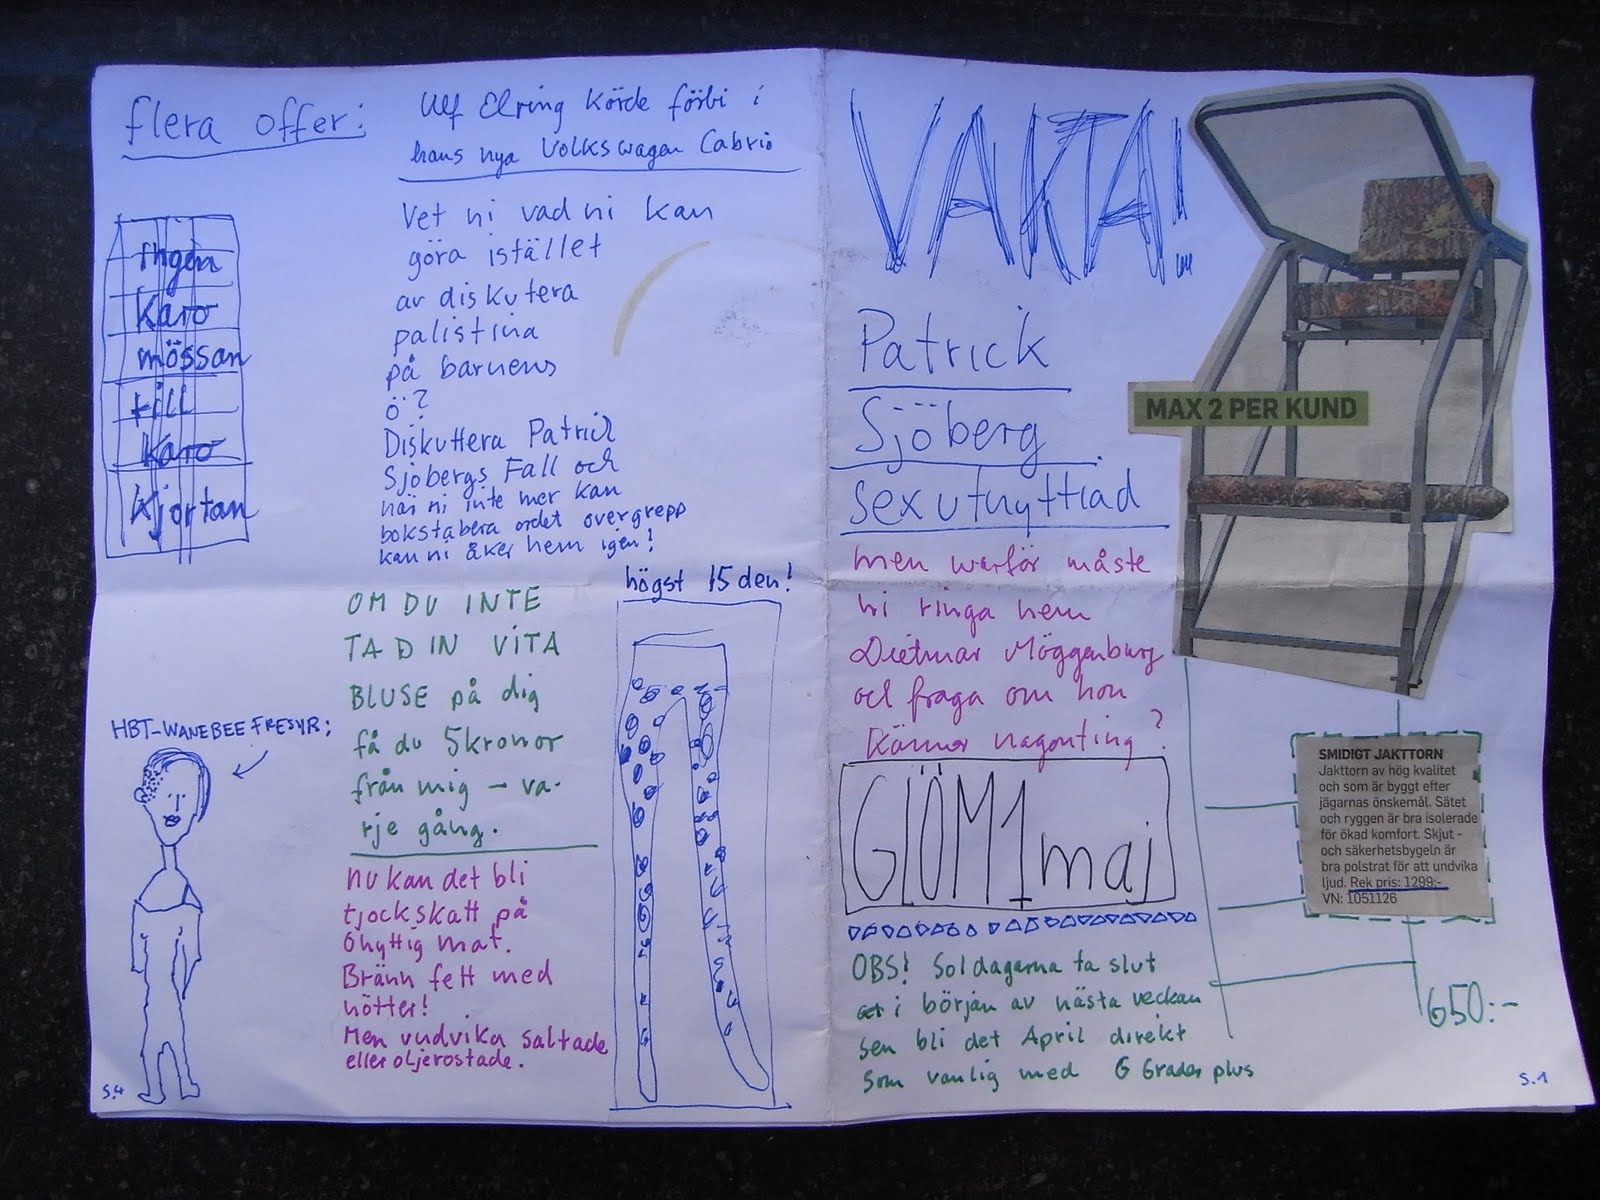 flera offer:
Ulf Elring körde förbi i
hans nya Volkswagen Cabrio
Ingen
Karo
mössan
till
Karo
Kjortan
Vet ni vad ni kan
göra istället
av diskutera
palistina
på barnens
ö?
Diskuttera Patrick
Sjöbergs Fall och
när ni inte mer kan
bokstabera ordet overgrepp
kan ni åker hem igen!
OM DU INTE
TA DIN VITA
BLUSE på dig
få du 5kronor
från mig - va-
rje gång.
högst 15 den!
HBT-WANEBEE FRESYR;
nu kan det bli
tjockskatt på
Ohyttig mat.
Bränn fett med
nötter!
Men vudvika saltade
eller oljerostade.
S.4
VAKTA!
Patrick
Sjöberg
sexutnyttjad
men warför måste
ni ringa hem
Dietmar Möggenburg
och fraga om hon
Känner nagonting?
GLÖM 1 maj
OBS! Soldagarna ta slut
i början av nästa veckan
sen bli det April direkt
Som vanlig med 6 Grader plus
MAX 2 PER KUND
SMIDIGT JAKTTORN
Jakttorn av hög kvalitet
och som är byggt efter
jägarnas önskemål. Sätet
och ryggen är bra isolerade
för ökad komfort. Skjut -
och säkerhetsbygeln är
bra polstrat för att undvika
ljud. Rek pris: 1299:-
VN: 1051126
650:-
S.1